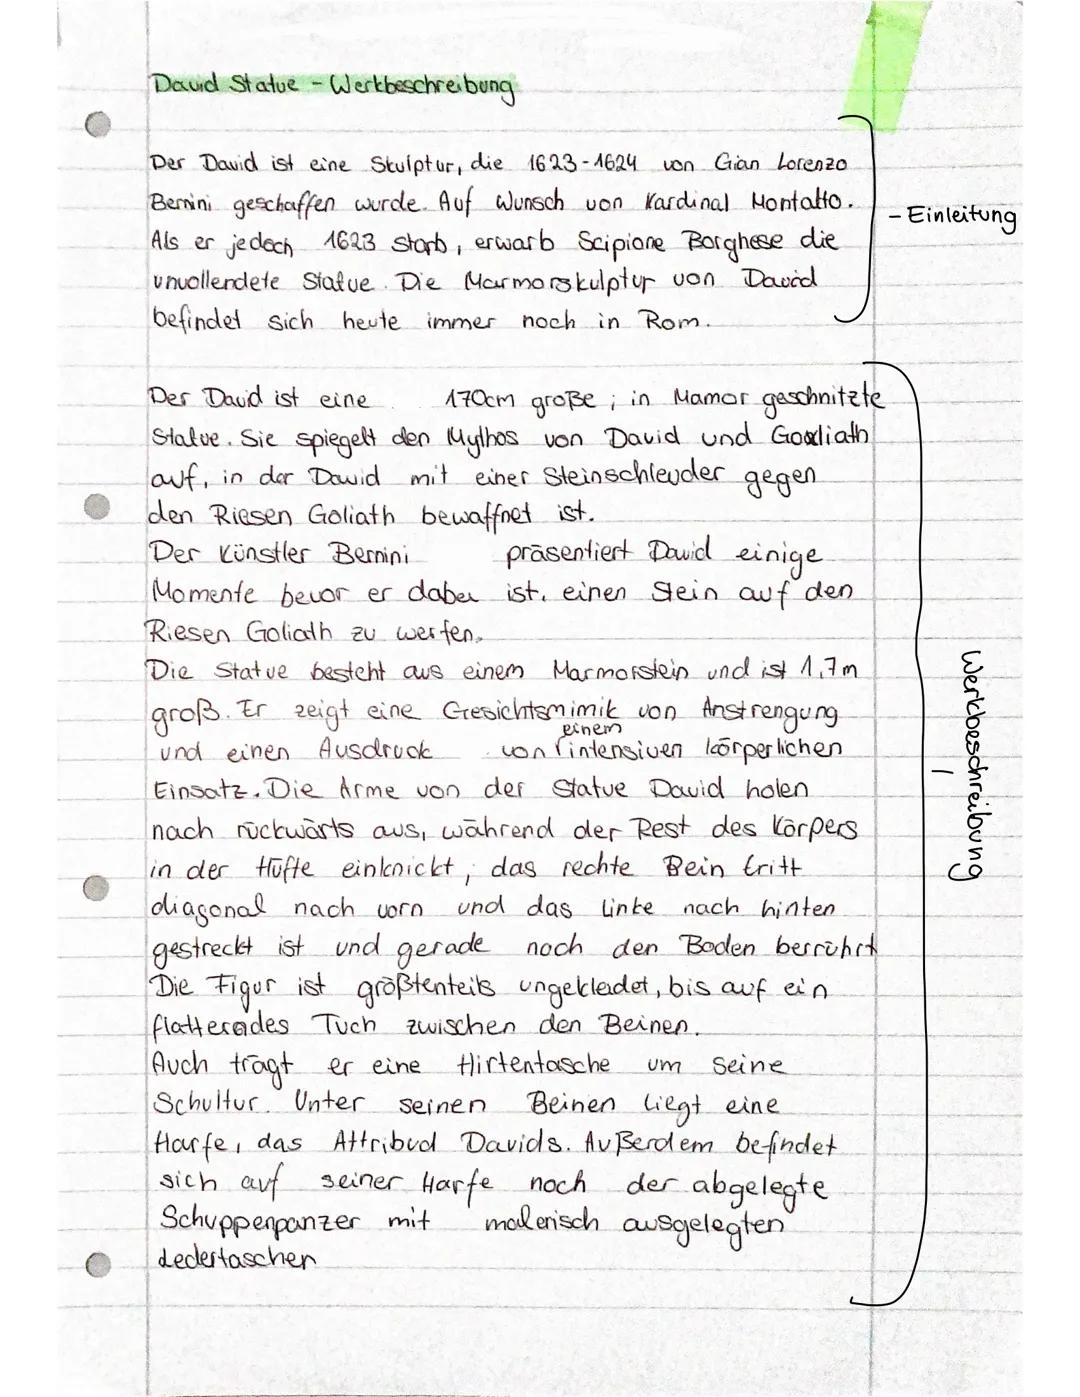 David Statue - Werkbeschreibung
Der David ist eine Skulptur, die 1623-1624 von Gian Lorenzo
Bernini geschaffen wurde. Auf Wunsch von Kardinal Montatto.
Als er jedoch 1623 starb, erwarb Scipione Borghese die
unvollendete Statue. Die Marmorskulptur von David
befindet sich heute immer noch in Rom.
- Einleitung
Der David ist eine 170cm große, in Mamor geschnitzte
Statue. Sie spiegelt den Mythos von David und Goaliath
auf, in der David mit einer Steinschleuder gegen
den Riesen Goliath bewaffnet ist.
Der Künstler Bernini präsentiert David einige
Momente bevor er dabei ist, einen Stein auf den
Riesen Goliath zu werfen.
Die Statue besteht aus einem Marmorstein und ist 1,7m
groß. Er zeigt eine Gesichtsmimik von Anstrengung
und einen Ausdruck von einem intensiven körperlichen
Einsatz. Die Arme von der Statue David holen
nach rückwärts aus, während der Rest des Körpers
in der Hüfte einknickt, das rechte Bein tritt
diagonal nach vorn und das linke nach hinten
gestreckt ist und gerade noch den Boden berrührt
Die Figur ist größtenteils ungekleidet, bis auf ein
flatterndes Tuch zwischen den Beinen.
Auch trägt er eine Hirtentasche um seine
Schultur. Unter seinen Beinen liegt eine
Harfe, das Attribud Davids. Außerdem befindet
sich auf seiner Harfe noch der abgelegte
Schuppenpanzer mit malerisch ausgelegten
Ledertaschen
- Werkbeschreibung